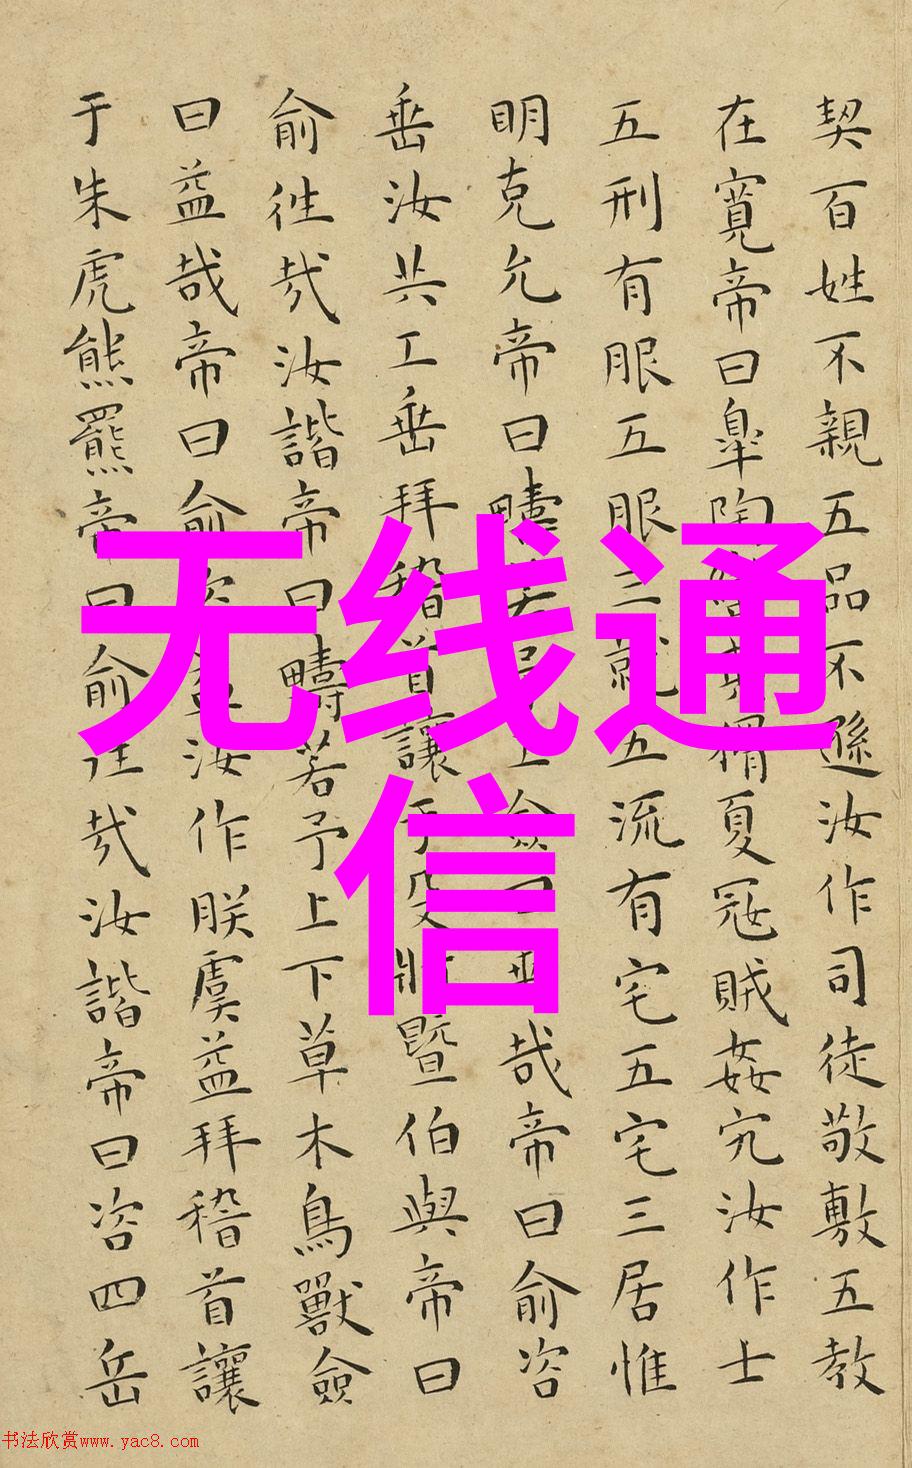 契百姓不親五品不遜汝作司徒敬敷五教
在寬帝曰臯陶蠻夷猾夏冦賊姦宄汝作士
五刑有服五服三就五流有宅五宅三居惟
明克允帝曰疇若予工僉曰垂哉帝曰俞咨
垂汝共工垂拜稽首讓于殳斨暨伯與帝曰
俞徃哉汝諧帝曰疇若予上下草木鳥獸僉
曰益哉帝曰俞咨益汝作朕虞益拜稽首讓
于朱虎熊羆帝曰俞徃哉汝諧帝曰咨四岳
无线通
信
书法欣赏www.yac8.com